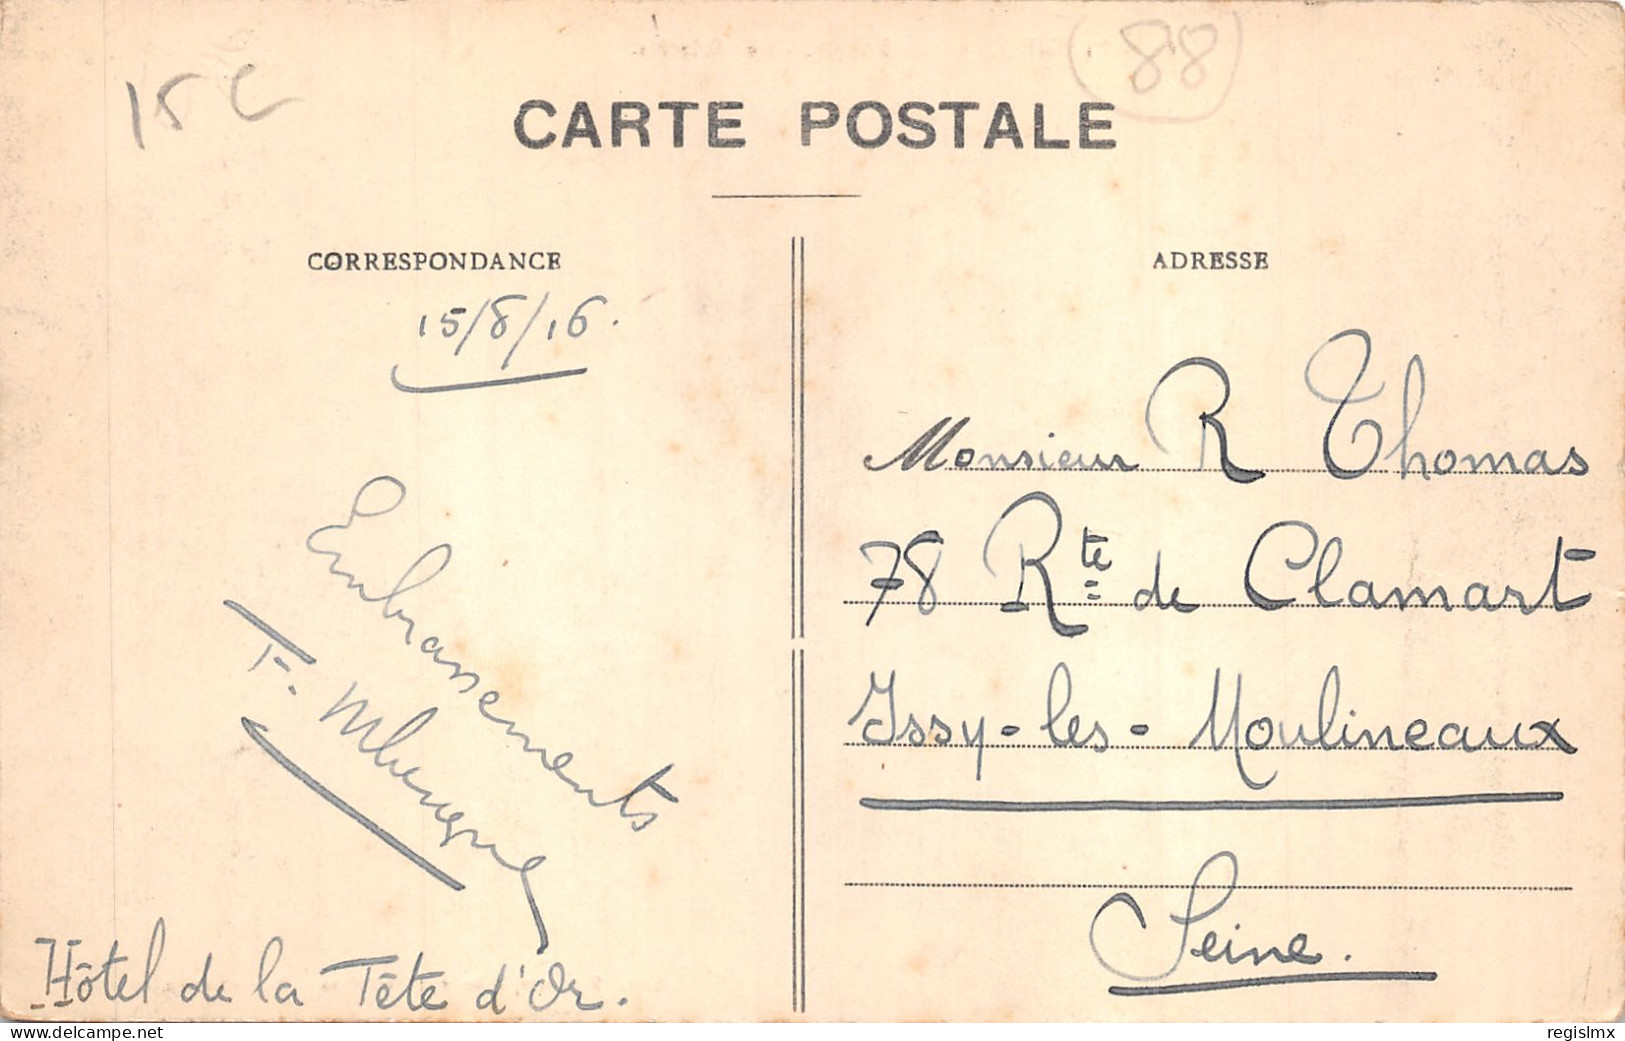 15 c
88
CARTE POSTALE
CORRESPONDANCE
15/8/16.
Embrassements
F.
Hôtel de la Tête d'Or.
ADRESSE
Monsieur R Thomas
78 Rte de Clamart
Issy-les-Moulineaux
Seine.
delcampe.net
regislmx